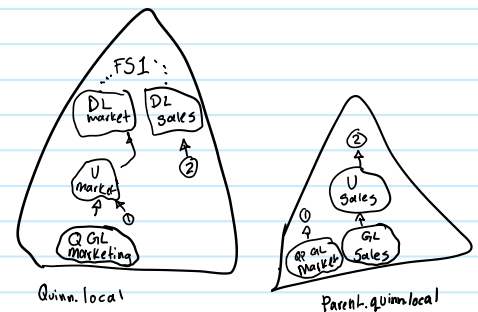 FS1
DL
market
DL
Sales
②
U
market
①
Q GL
marketing
Quinn.local
②
U
Sales
①
QP GL
market
GL
Sales
Parent.quinn.local